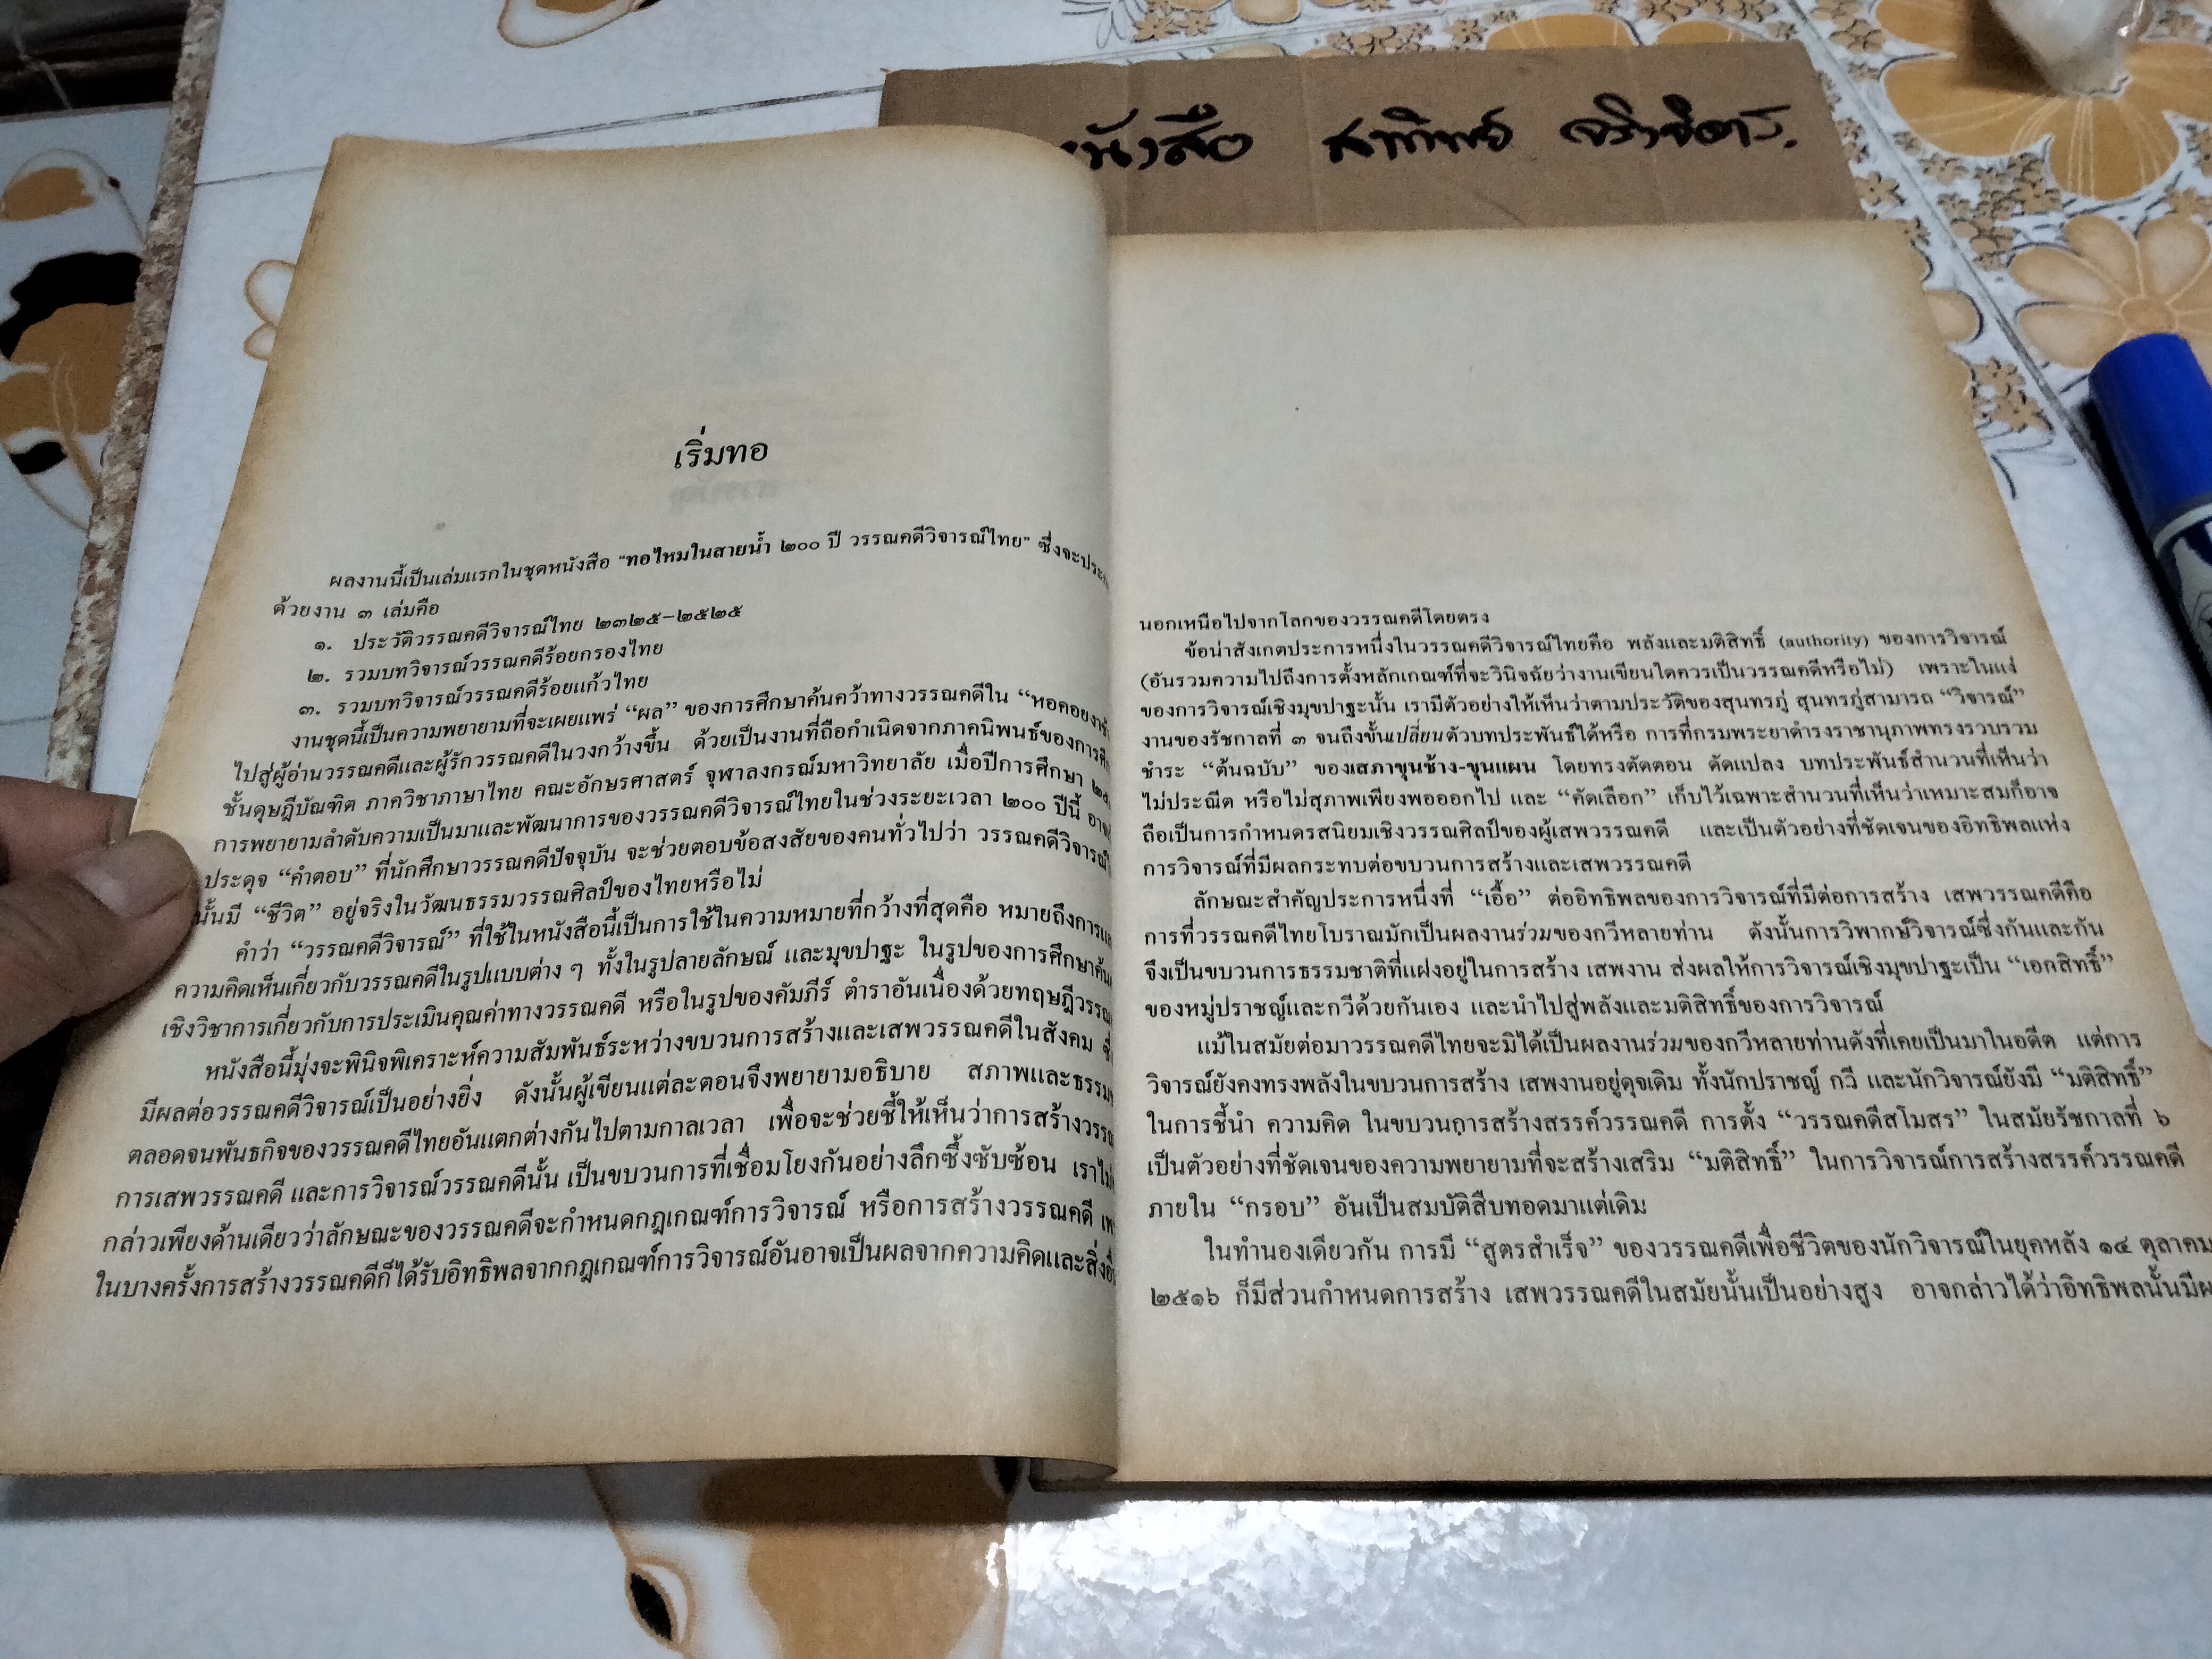 หนังสือ
เริ่มทอ
ผลงานนี้เป็นเล่มแรกในชุดหนังสือ “ทอไหมในสายน้ำ ๒๐๐ ปี วรรณคดีวิจารณ์ไทย” ซึ่งจะประก
ด้วยงาน ๓ เล่มคือ
๑. ประวัติวรรณคดีวิจารณ์ไทย ๒๓๒๕–๒๕๒๕
๒. รวมบทวิจารณ์วรรณคดีร้อยกรองไทย
๓. รวมบทวิจารณ์วรรณคดีร้อยแก้วไทย
งานชุดนี้เป็นความพยายามที่จะเผยแพร่ “ผล” ของการศึกษาค้นคว้าทางวรรณคดีใน “หอคอยงาช้า
ไปสู่ผู้อ่านวรรณคดีและผู้รักวรรณคดีในวงกว้างขึ้น ด้วยเป็นงานที่ถือกำเนิดจากภาคนิพนธ์ของการศึก
ชั้นดุษฎีบัณฑิต ภาควิชาภาษาไทย คณะอักษรศาสตร์ จุฬาลงกรณ์มหาวิทยาลัย เมื่อปีการศึกษา
การพยายามลำดับความเป็นมาและพัฒนาการของวรรณคดีวิจารณ์ไทยในช่วงระยะเวลา ๒๐๐ ปีนี้
ประดุจ “คำตอบ” ที่นักศึกษาวรรณคดีปัจจุบัน จะช่วยตอบข้อสงสัยของคนทั่วไปว่า วรรณคดีวิจารณ์
นั้นมี “ชีวิต” อยู่จริงในวัฒนธรรมวรรณศิลป์ของไทยหรือไม่
คำว่า “วรรณคดีวิจารณ์” ที่ใช้ในหนังสือนี้เป็นการใช้ในความหมายที่กว้างที่สุดคือ หมายถึงการแ
ความคิดเห็นเกี่ยวกับวรรณคดีในรูปแบบต่าง ๆ ทั้งในรูปลายลักษณ์ และมุขปาฐะ ในรูปของการศึกษาค้น
เชิงวิชาการเกี่ยวกับการประเมินคุณค่าทางวรรณคดี หรือในรูปของคัมภีร์ ตำราอันเนื่องด้วยทฤษฎีวรรณ
หนังสือนี้มุ่งจะพินิจพิเคราะห์ความสัมพันธ์ระหว่างขบวนการสร้างและเสพวรรณคดีในสังคม ซึ่
มีผลต่อวรรณคดีวิจารณ์เป็นอย่างยิ่ง ดังนั้นผู้เขียนแต่ละตอนจึงพยายามอธิบาย สภาพและธรรม
ตลอดจนพันธกิจของวรรณคดีไทยอันแตกต่างกันไปตามกาลเวลา เพื่อจะช่วยชี้ให้เห็นว่าการสร้างวรรณ
การเสพวรรณคดี และการวิจารณ์วรรณคดีนั้น เป็นขบวนการที่เชื่อมโยงกันอย่างลึกซึ้งซับซ้อน เราไม่
กล่าวเพียงด้านเดียวว่าลักษณะของวรรณคดีจะกำหนดกฎเกณฑ์การวิจารณ์ หรือการสร้างวรรณคดี เพ
ในบางครั้งการสร้างวรรณคดีก็ได้รับอิทธิพลจากกฎเกณฑ์การวิจารณ์อันอาจเป็นผลจากความคิดและสิ่งอื
นอกเหนือไปจากโลกของวรรณคดีโดยตรง
ข้อน่าสังเกตประการหนึ่งในวรรณคดีวิจารณ์ไทยคือ พลังและมติสิทธิ์ (authority) ของการวิจารณ์
(อันรวมความไปถึงการตั้งหลักเกณฑ์ที่จะวินิจฉัยว่างานเขียนใดควรเป็นวรรณคดีหรือไม่) เพราะในแง่
ของการวิจารณ์เชิงมุขปาฐะนั้น เรามีตัวอย่างให้เห็นว่าตามประวัติของสุนทรภู่ สุนทรภู่สามารถ “วิจารณ์”
งานของรัชกาลที่ ๓ จนถึงขั้นเปลี่ยนตัวบทประพันธ์ได้หรือ การที่กรมพระยาดำรงราชานุภาพทรงรวบรวม
ชำระ “ต้นฉบับ” ของเสภาขุนช้าง-ขุนแผน โดยทรงตัดตอน ดัดแปลง บทประพันธ์สำนวนที่เห็นว่า
ไม่ประณีต หรือไม่สุภาพเพียงพอออกไป และ “คัดเลือก” เก็บไว้เฉพาะสำนวนที่เห็นว่าเหมาะสมก็อาจ
ถือเป็นการกำหนดรสนิยมเชิงวรรณศิลป์ของผู้เสพวรรณคดี และเป็นตัวอย่างที่ชัดเจนของอิทธิพลแห่ง
การวิจารณ์ที่มีผลกระทบต่อขบวนการสร้างและเสพวรรณคดี
ลักษณะสำคัญประการหนึ่งที่ “เอื้อ” ต่ออิทธิพลของการวิจารณ์ที่มีต่อการสร้าง เสพวรรณคดีคือ
การที่วรรณคดีไทยโบราณมักเป็นผลงานร่วมของกวีหลายท่าน ดังนั้นการวิพากษ์วิจารณ์ซึ่งกันและกัน
จึงเป็นขบวนการธรรมชาติที่แฝงอยู่ในการสร้าง เสพงาน ส่งผลให้การวิจารณ์เชิงมุขปาฐะเป็น “เอกสิทธิ์”
ของหมู่ปราชญ์และกวีด้วยกันเอง และนำไปสู่พลังและมติสิทธิ์ของการวิจารณ์
แม้ในสมัยต่อมาวรรณคดีไทยจะมิได้เป็นผลงานร่วมของกวีหลายท่านดังที่เคยเป็นมาในอดีต แต่การ
วิจารณ์ยังคงทรงพลังในขบวนการสร้าง เสพงานอยู่ดุจเดิม ทั้งนักปราชญ์ กวี และนักวิจารณ์ยังมี “มติสิทธิ์”
ในการชี้นำ ความคิด ในขบวนการสร้างสรรค์วรรณคดี การตั้ง “วรรณคดีสโมสร” ในสมัยรัชกาลที่ ๖
เป็นตัวอย่างที่ชัดเจนของความพยายามที่จะสร้างเสริม “มติสิทธิ์” ในการวิจารณ์การสร้างสรรค์วรรณคดี
ภายใน “กรอบ” อันเป็นสมบัติสืบทอดมาแต่เดิม
ในทำนองเดียวกัน การมี “สูตรสำเร็จ” ของวรรณคดีเพื่อชีวิตของนักวิจารณ์ในยุคหลัง ๑๔ ตุลาคม
๒๕๑๖ ก็มีส่วนกำหนดการสร้าง เสพวรรณคดีในสมัยนั้นเป็นอย่างสูง อาจกล่าวได้ว่าอิทธิพลนั้นมีผ